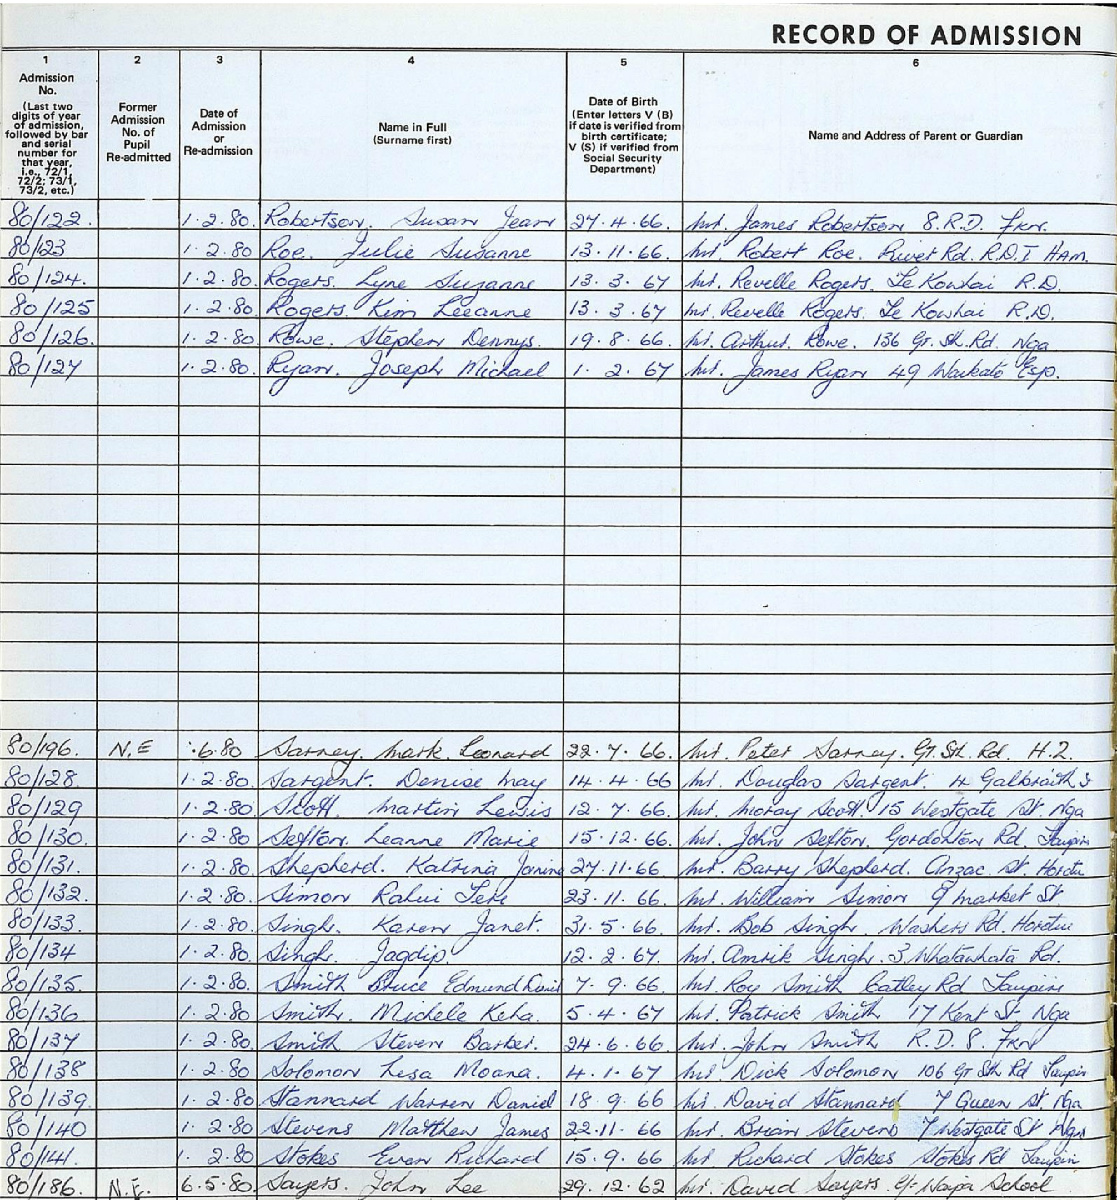 RECORD OF ADMISSION
1 2 3 4 5 6
Admission No. (Last two digits of year of admission, followed by bar and serial number for that year, i.e., 72/1, 72/2; 73/1, 73/2, etc.)
Former Admission No. of Pupil Re-admitted
Date of Admission or Re-admission
Name in Full (Surname first)
Date of Birth (Enter letters V (B) if date is verified from birth certificate; V (S) if verified from Social Security Department)
Name and Address of Parent or Guardian
80/122. 1.2.80 Robertson. Susan Jean 27.4.66. Mr. James Robertson 8.R.D. Fkn.
80/123 1.2.80 Roe. Julie Susanne 13.11.66. Mr. Robert Roe. River Rd. R.D.1 Ham.
80/124. 1.2.80. Rogers. Lyne Suzanne 13.3.67 Mr. Revelle Rogers. Te Kowhai R.D.
80/125 1.2.80. Rogers. Kim Leeanne 13.3.67 Mr. Revelle Rogers. Te Kowhai R.D.
80/126. 1.2.80. Rowe. Stephen Dennys. 19.8.66 Mr. Arthur. Rowe. 136 Gt. Sth. Rd. Nga
80/127 1.2.80. Ryan. Joseph Michael 1.2.67 Mr. James Ryan 49 Waikato Esp.
80/196. N.E .6.80 Sarney. Mark Leonard 22.7.66. Mr. Peter Sarney. Gt. Sth. Rd. H.2.
80/128 1.2.80. Sargent. Denise May 14.4.66 Mr. Douglas Sargent. Galbraith S
80/129 1.2.80. Scott. Martin Lewis 12.7.66. Mr. Moray Scott. 15 Westgate St. Nga
80/130. 1.2.80. Sefton. Leanne Marie 15.12.66. Mr. John Sefton. Gordonton Rd. Taupiri
80/131. 1.2.80. Shepherd. Katrina Janine 27.11.66 Mr. Barry Shepherd. Anzac St. Horotiu
80/132. 1.2.80. Simon Rahui Tere 23.11.66. Mr. William Simon 9 Market St
80/133. 1.2.80. Singh. Karen Janet. 31.5.66. Mr. Bob Singh. Washers Rd. Horotiu
80/134 1.2.80. Singh. Jagdip 12.2.67. Mr. Amrik Singh. 3 Whatawhata Rd.
80/135. 1.2.80. Smith Bruce Edmund David 7.9.66 Mr. Roy Smith Catley Rd Taupiri
80/136 1.2.80. Smith. Michele Keha. 5.4.67 Mr. Patrick Smith 17 Kent St. Nga
80/137 1.2.80. Smith Steven Barker. 24.6.66. Mr. John Smith R.D.8. Fkn
80/138 1.2.80 Solomon Lesa Moana. 4.1.67 Mr. Dick Solomon 106 Gt Sth Rd Taupiri
80/139. 1.2.80. Stannard Warren Daniel 18.9.66 Mr. David Stannard 7 Queen St. Nga
80/140 1.2.80 Stevens Matthew James 22.11.66 Mr. Brian Stevens 7 Westgate St Nga
80/141. 1.2.80. Stokes Even Richard 15.9.66 Mr. Richard Stokes Stokes Rd Taupiri
80/186. N.E. 6.5.80 Sayers. John Lee 29.12.62 Mr. David Sayers. Waipa School